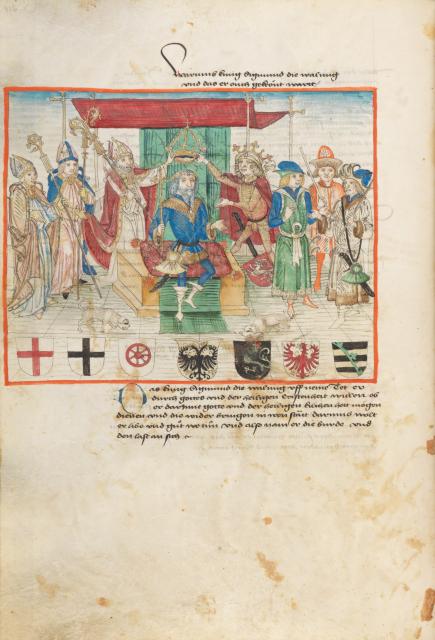 Warumb küng Sigmund die walung
vnd das er ouch gekrönt wart
Das küng Sigmund die walung vff neme Tet er
durch gottes vnd der heiligen cristenheit willen ob
er darinne gotte vnd der heiligen kilchen hett mögen
dienen vnd die wider bringen in iren statt darumb wolt
er lib vnd gůt wogen vnd also nam er die burde vnd
den last an sich